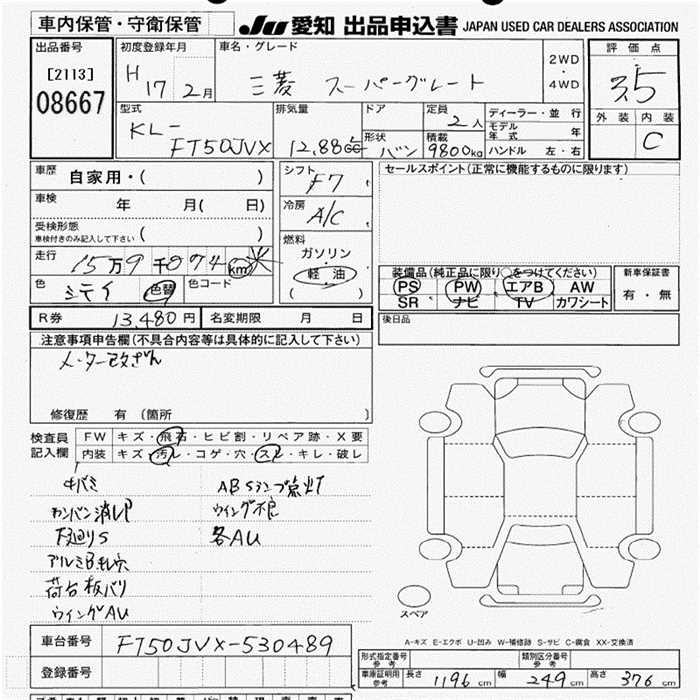 車内保管・守衛保管
JU 愛知 出品申込書 JAPAN USED CAR DEALERS ASSOCIATION
出品番号
[2113]
08667
初度登録年月
H 17 2月
車名・グレード
三菱 スーパーグレート
2WD
・
4WD
評価点
3.5
外装 内装
C
型式
KL-
FT50JVX
排気量
12.88
ドア
定員
2人
形状
バン
積載
9800kg
ディーラー・並行
モデル年式 年
ハンドル 左・右
車歴
自家用・( )
車検
年 月( 日)
受検形態
車検付きのみ記入して下さい ( )
走行
15万9千074km
色
色替
色コード
シフト
F7
冷房
A/C
燃料
ガソリン
・
軽油
( )
セールスポイント(正常に機能するものに限ります)
装備品(純正品に限り○をつけてください)
PS PW エアB AW
SR ナビ TV カワシート
新車保証書
有・無
後日品
R券 13,480円
名変期限 月 日
注意事項申告欄(不具合内容等は具体的に記入して下さい)
メーター改ざん
修復歴 有 〔箇所 〕
検査員
記入欄
FW キズ・飛石・ヒビ割・リペア跡・X要
内装 キズ・汚レ・コゲ・穴・スレ・キレ・破レ
キバミ
カンバン消し跡
下廻りS
アルミB
荷台板バリ
ウイングAU
ABSランプ点灯
ウイング不良
各AU
スペア
A-キズ E-エクボ U-凹み W-補修跡 S-サビ C-腐食 XX-交換済
車台番号 FT50JVX-530489
登録番号
形式指定番号
参考
類別区分番号
参考
車庫証明用
参考
長さ 1196cm 幅 249cm 高さ 376cm